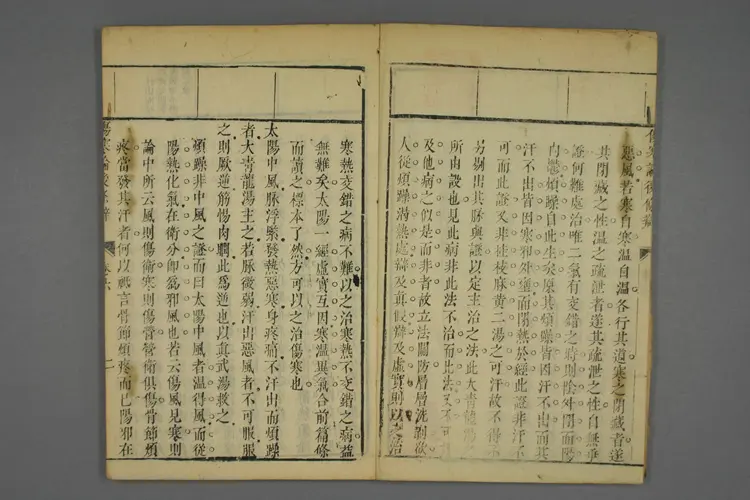 惡風若寒自寒溫自溫各行其道寒之閉藏者遂
其閉藏之性溫之疏泄者遂其疏泄之性自無乖
證何難處治唯二氣有交錯之時則陰外閉而陽
內鬱煩躁自此生矣原其煩躁皆因汗不出而其
汗不出皆因寒邪外壅而閉熱於經此證非汗不
可而此證又非桂枝麻黃二湯之可汗故不得不
另剔出其脉與證以定主治之法此大青龍湯之
所由設也見此病非此法不治而此法又不可
及他病之似是而非者故立法關防層層洗剔欲
人從煩躁溯熱處辯及真假辯及虛實則以之治
寒熱交錯之病不難以之治寒熱不交錯之病益
無難矣太陽一經虛實互因寒溫異氣合前篇條
而讀之標本了然方可以之治傷寒也
太陽中風脉浮緊發熱惡寒身疼痛不汗出而煩躁
者大青龍湯主之若脉微弱汗出惡風者不可服服
之則厥逆筋惕肉瞤此爲逆也以真武湯救之
煩躁非中風之證而曰太陽中風者溫得風而從
陽熱化氣在衛分卽爲邪風也若云傷風見寒則
論中所云風則傷衛寒則傷營營衛俱傷骨節煩
疼當發其汗者何以祇言骨節煩疼而已陽邪在
卷六
二